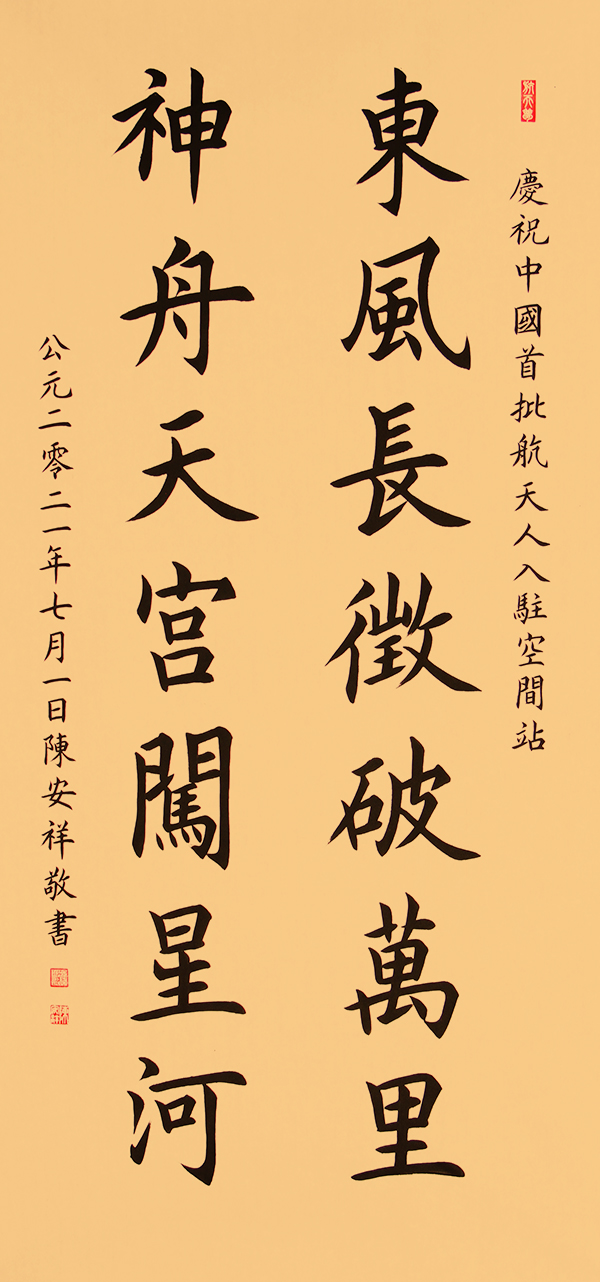 慶祝中國首批航天人入駐空間站
東風長徵破萬里
神舟天宮闖星河
公元二零二一年七月一日陳安祥敬書